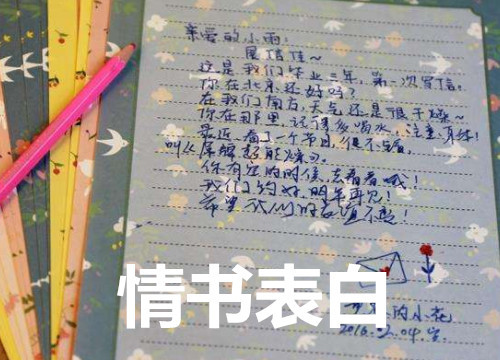 亲爱的小雨:
展信佳~
这是我们毕业三年,第一次写信。
你在北京还好吗?
在我们南方,天气还是很干燥~
你在那里,记得多喝水,注意身体!
最近看了一个节目,很不错,
叫
你有空的时候,去看看哦!
我们约好,明年再见!
希望我们的友谊不散!
情书表白
的小花
2016.2.04.